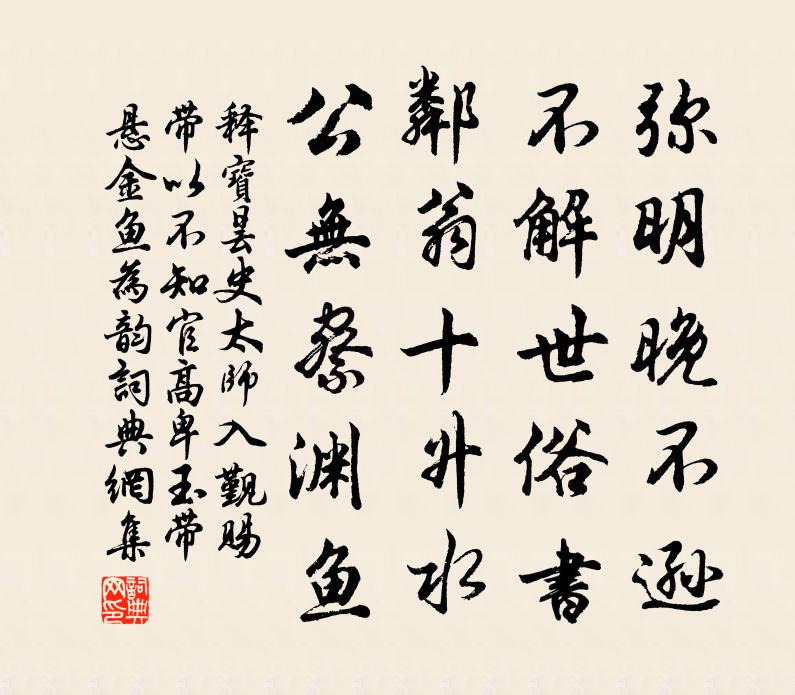 弥明晚不逊
不解世俗書
鄰翁十升水
公無察渊鱼
释寶昙史太師入觐赐
带以不知官高卑玉带
悬金鱼為韵詞典網集
詞典网印